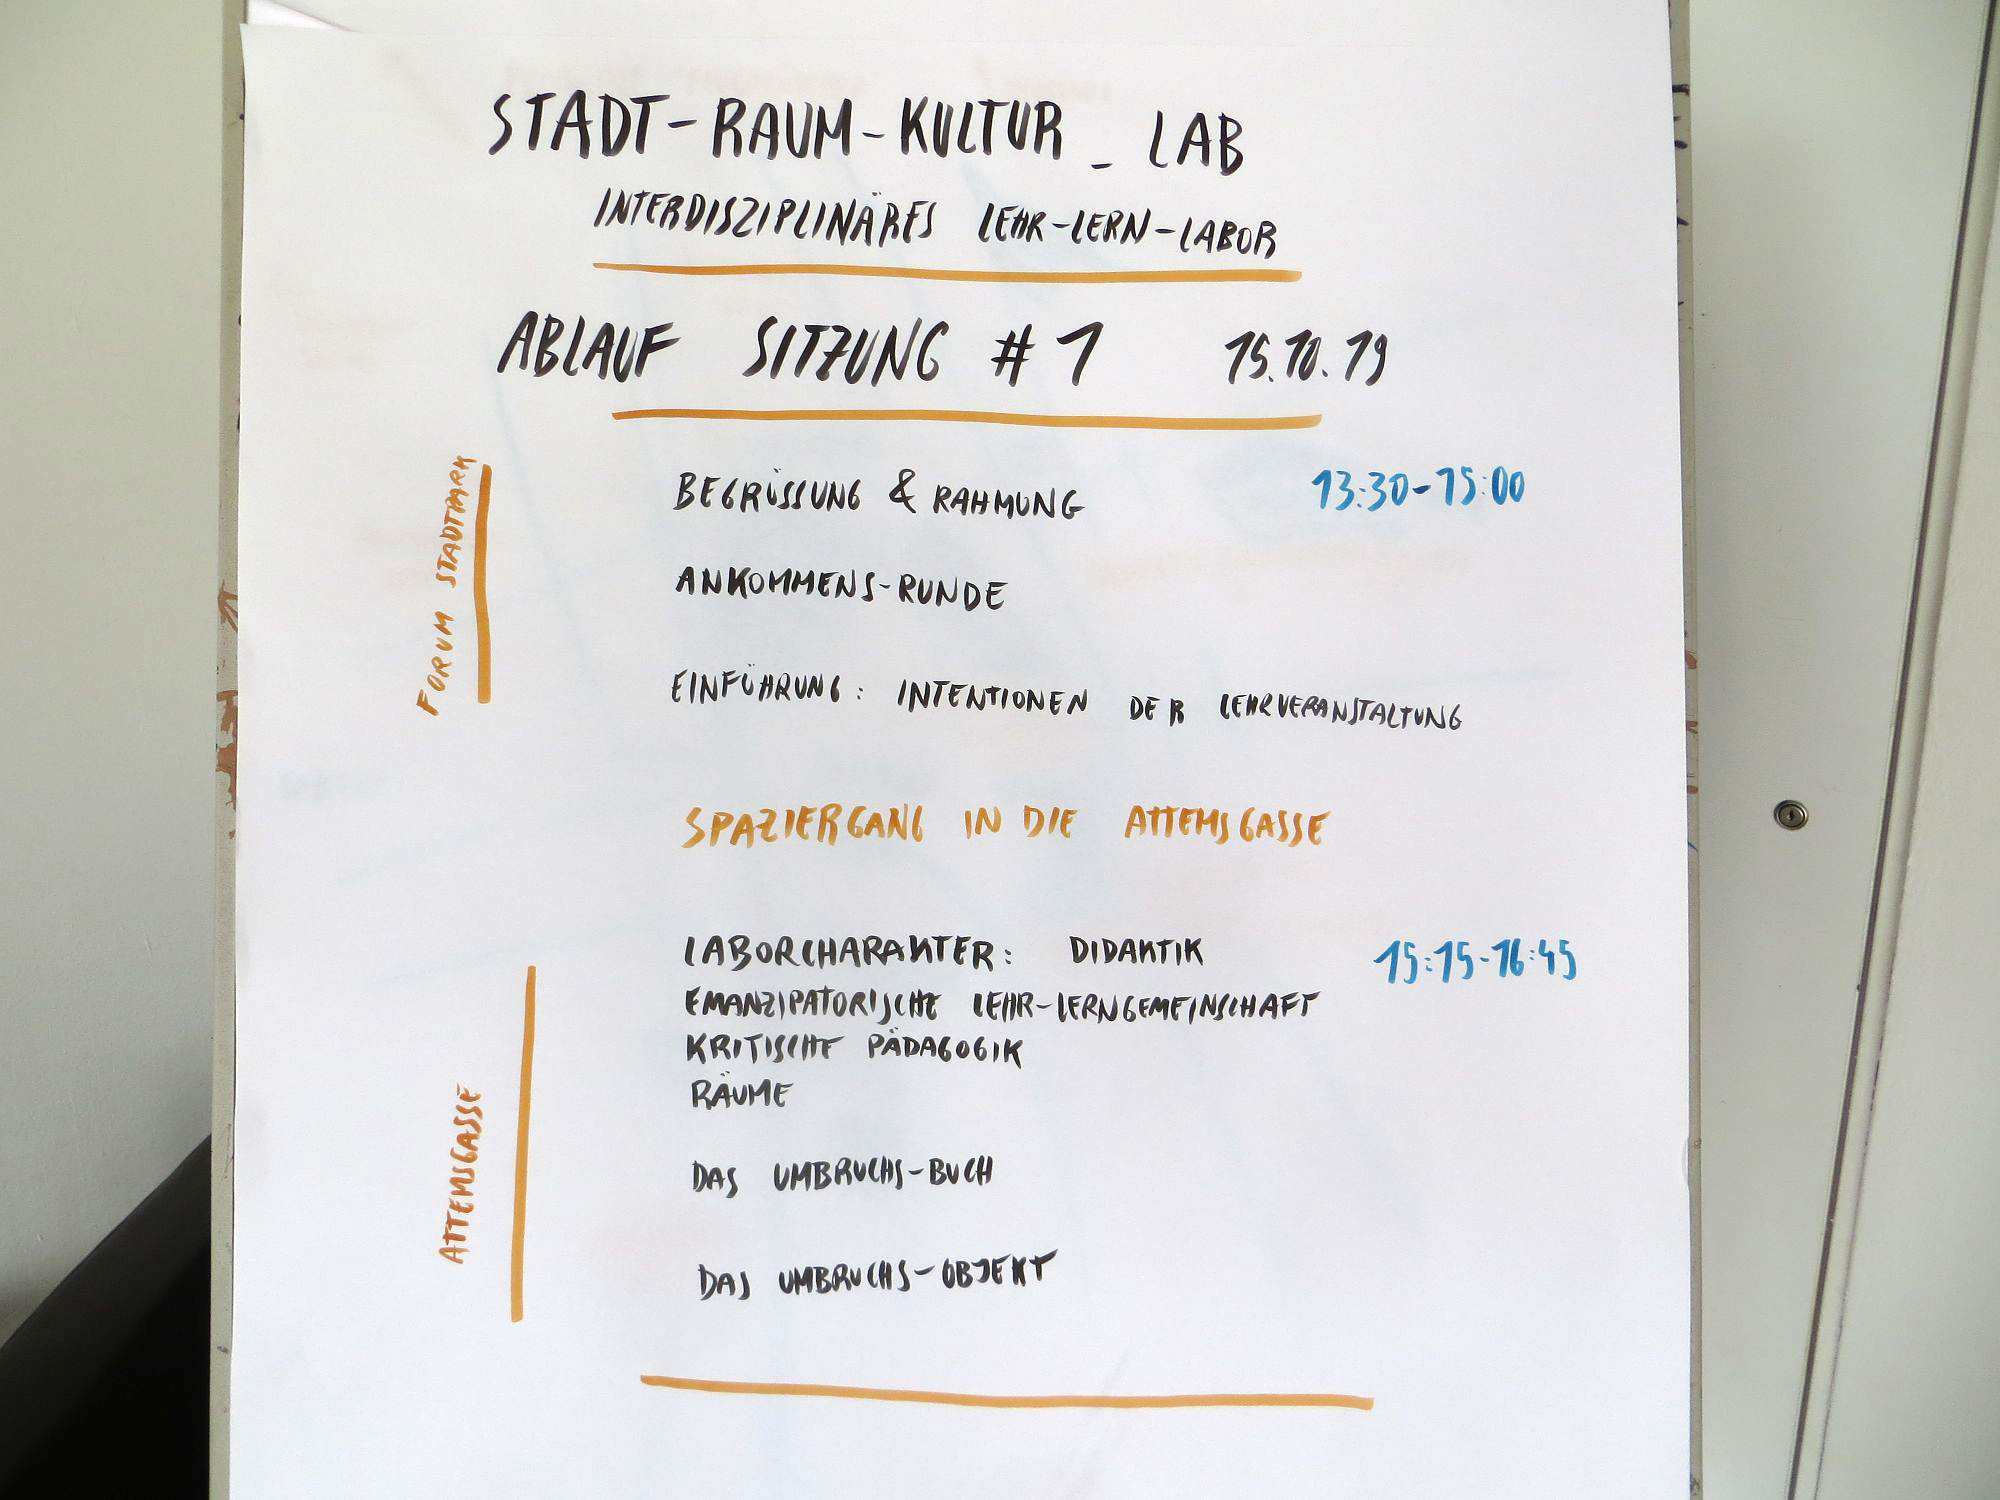 STADT-RAUM-KULTUR_LAB
INTERDISZIPLINÄRES LEHR-LERN-LABOR
ABLAUF SITZUNG #1 15.10.19
FORUM STADTPARK
BEGRÜSSUNG & RAHMUNG 13:30-15:00
ANKOMMENS-RUNDE
EINFÜHRUNG: INTENTIONEN DER LEHRVERANSTALTUNG
SPAZIERGANG IN DIE ATTEMSGASSE
ATTEMSGASSE
LABORCHARAKTER: DIDAKTIK 15:15-16:45
EMANZIPATORISCHE LEHR-LERNGEMEINSCHAFT
KRITISCHE PÄDAGOGIK
RÄUME
DAS UMBRUCHS-BUCH
DAS UMBRUCHS-OBJEKT